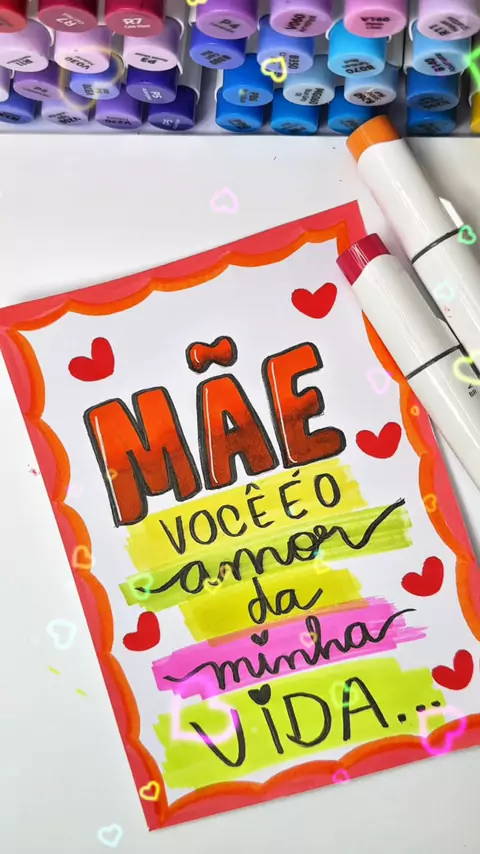 R7
P4
MÃE
VOCÊ É O
amor
da
minha
VIDA...